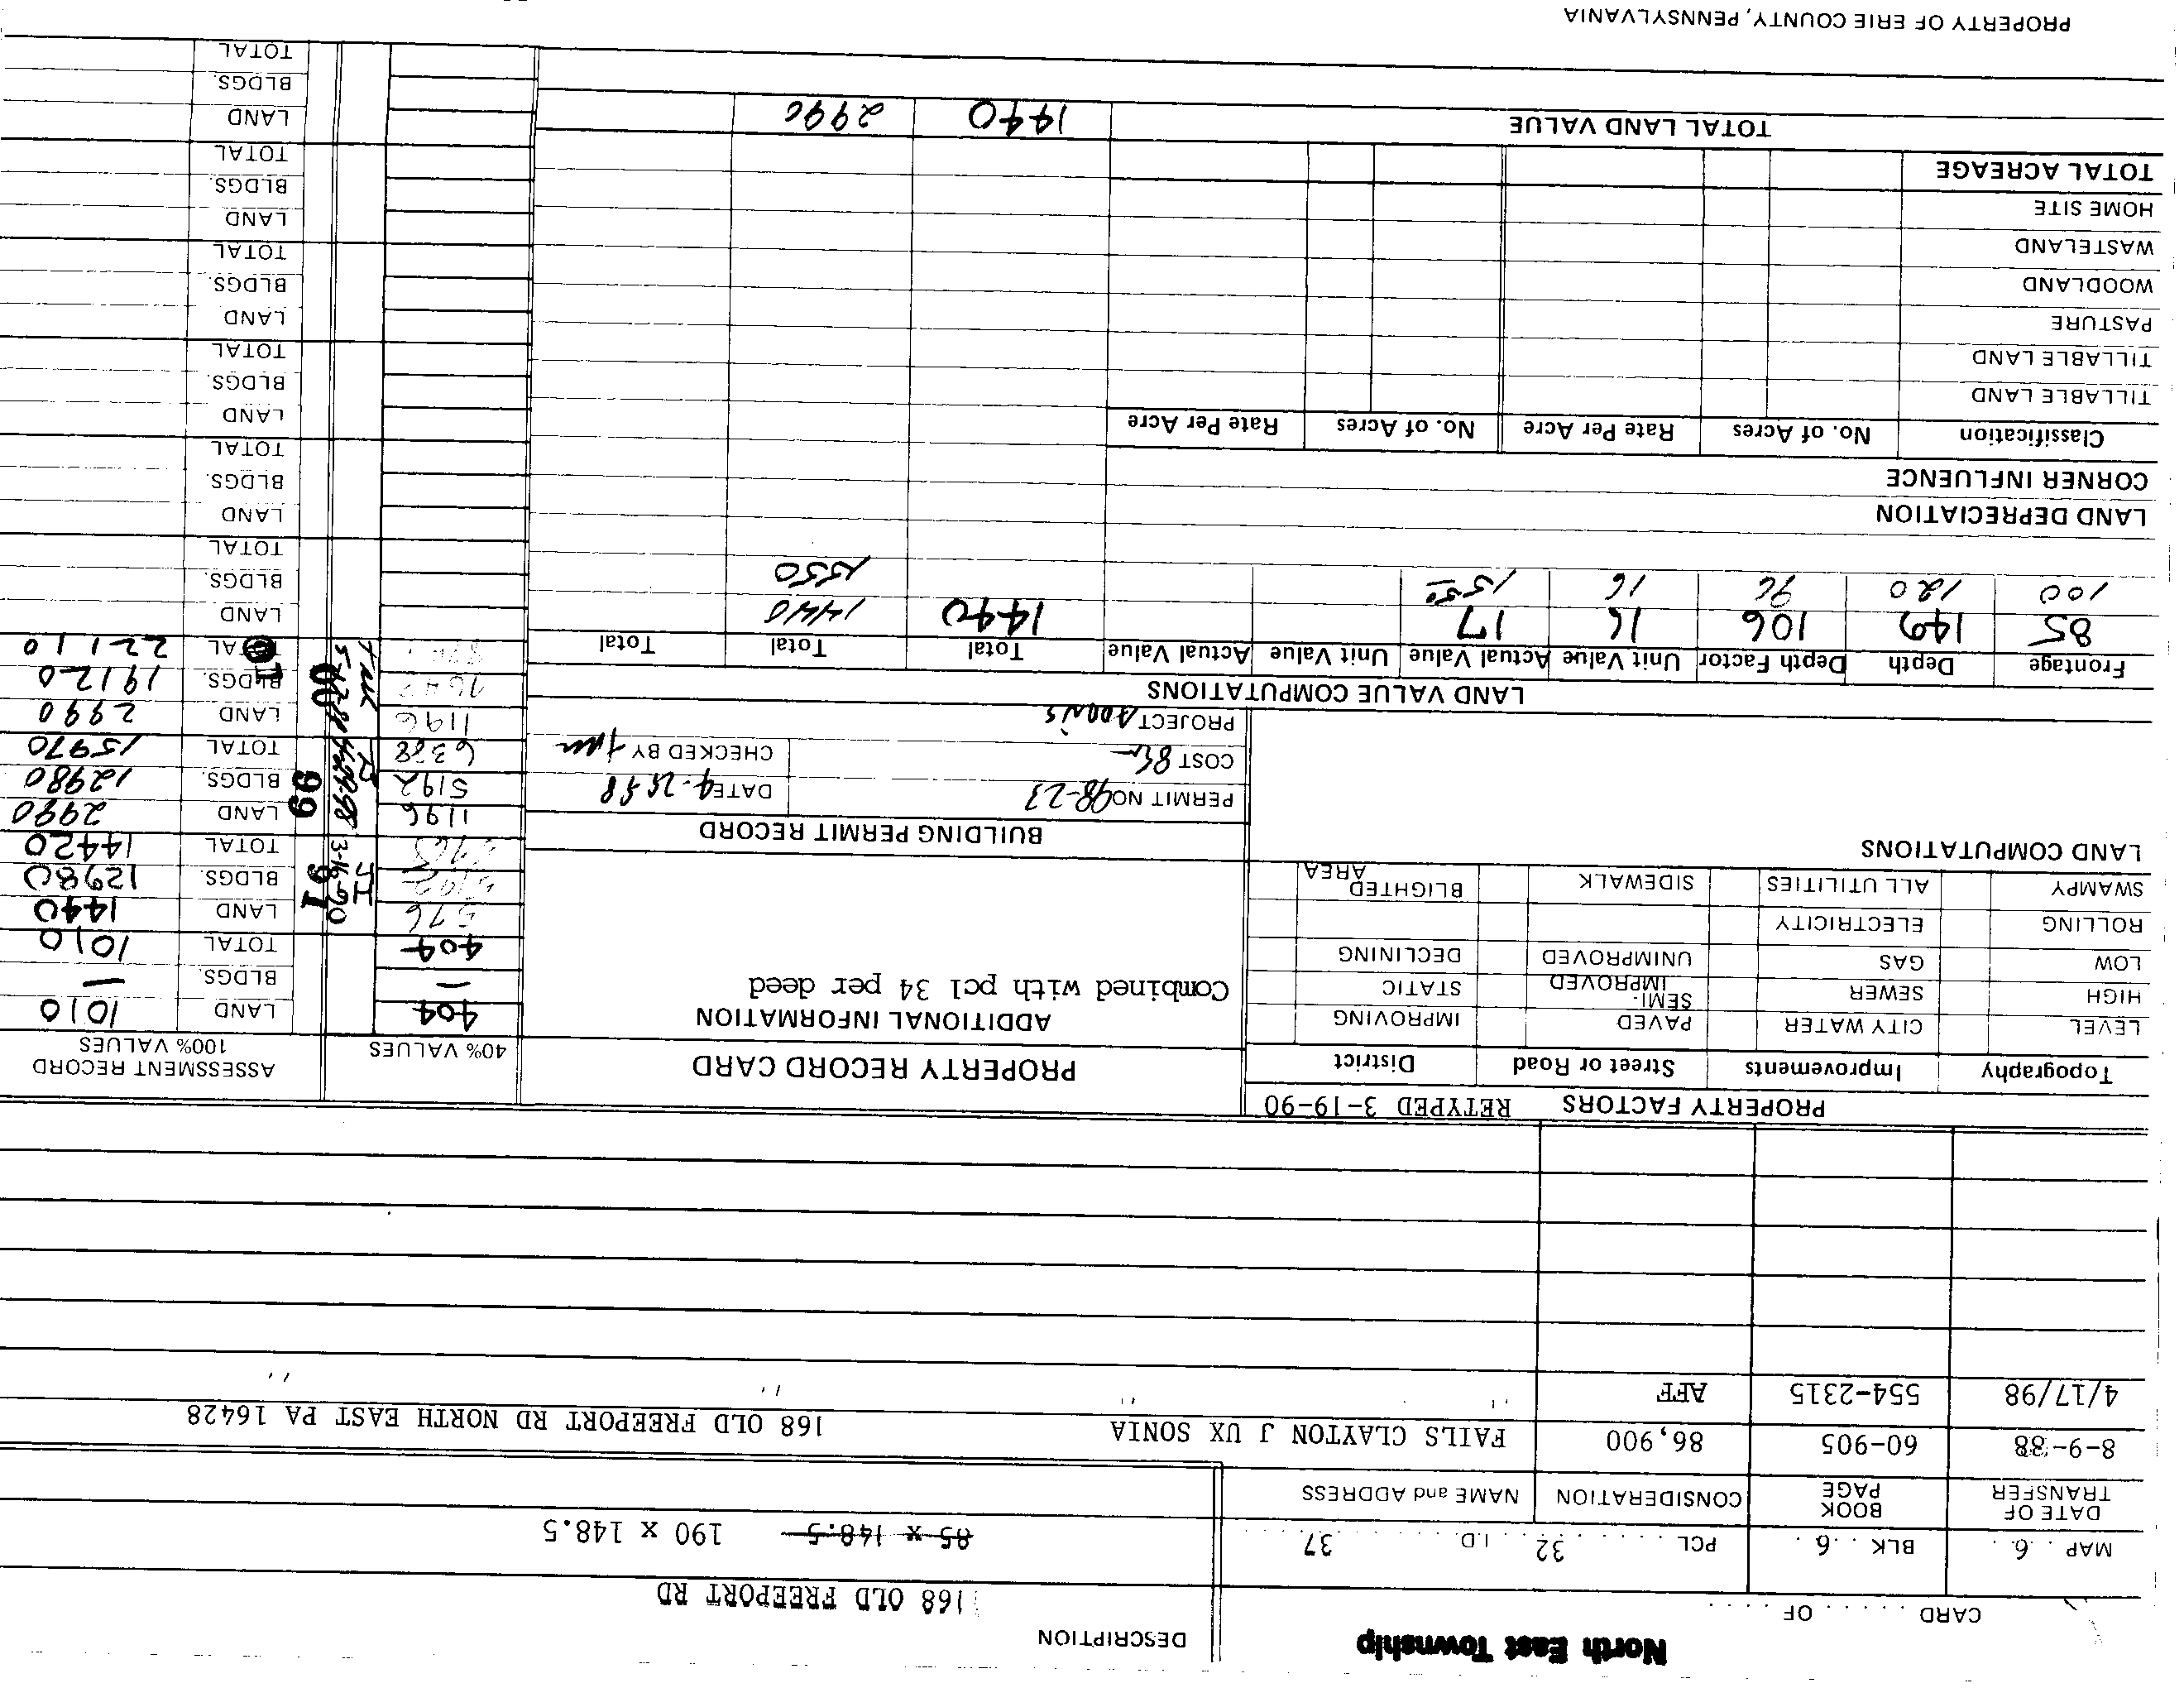 North East Township
CARD . . . . . . OF . . . . .
DESCRIPTION
168 OLD FREEPORT RD
MAP . . 6 . . BLK . . 6 . . PCL . . . . . 32 . . . I.D. . . . . 37 . . . .
85 x 148.5 190 x 148.5
DATE OF TRANSFER BOOK PAGE CONSIDERATION NAME and ADDRESS
8-9-88 60-905 86,900 FAILS CLAYTON J UX SONIA 168 OLD FREEPORT RD NORTH EAST PA 16428
4/17/98 554-2315 AFF '' '' '' ''
PROPERTY FACTORS RETYPED 3-19-90
Topography Improvements Street or Road District
LEVEL CITY WATER PAVED IMPROVING
HIGH SEWER SEMI-IMPROVED STATIC
LOW GAS UNIMPROVED DECLINING
ROLLING ELECTRICITY
SWAMPY ALL UTILITIES SIDEWALK BLIGHTED AREA
LAND COMPUTATIONS
PROPERTY RECORD CARD
ADDITIONAL INFORMATION
Combined with pcl 34 per deed
BUILDING PERMIT RECORD
PERMIT NO 98-23 DATE 4-25-98
COST CHECKED BY
PROJECT
40% VALUES ASSESSMENT RECORD
100% VALUES
404 LAND 1010
— BLDGS. —
404 TOTAL 1010
576 3-16-90 91 LAND 1440
5192 BLDGS. 12980
TOTAL 14420
1196 99 LAND 2990
5192 BLDGS. 12980
6388 TOTAL 15970
1196 00 LAND 2990
BLDGS. 19120
01 TOTAL 22110
LAND
BLDGS.
TOTAL
LAND
BLDGS.
TOTAL
LAND
BLDGS.
TOTAL
LAND
BLDGS.
TOTAL
LAND
BLDGS.
TOTAL
LAND
BLDGS.
TOTAL
LAND VALUE COMPUTATIONS
Frontage Depth Depth Factor Unit Value Actual Value Unit Value Actual Value Total Total Total
85 149 106 16 17 1440 1440
100 120 96 16 15.50 1550
LAND DEPRECIATION
CORNER INFLUENCE
Classification No. of Acres Rate Per Acre No. of Acres Rate Per Acre
TILLABLE LAND
TILLABLE LAND
PASTURE
WOODLAND
WASTELAND
HOME SITE
TOTAL ACREAGE
TOTAL LAND VALUE 1440 2990
PROPERTY OF ERIE COUNTY, PENNSYLVANIA